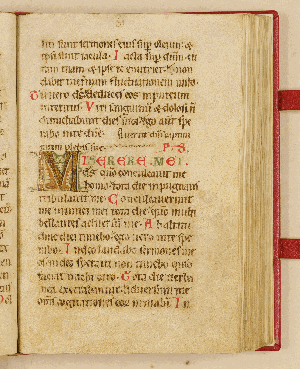 iusti sunt sermones eius sup oleum: et
ipsi sunt iacula. Iacta sup dñm cu
ram tuam et ipse te enutriet: non
dabit
Tu vero ds deduces eos in puteum
interitus. Viri sanguinum et dolosi ñ
dimidiabunt dies suos: ego aut spe
rabo in te dñe.
Ps.
MISERERE MEI
DS qm conculcavit me
homo: tota die impugnans
tribulavit me. Conculcaverunt
me inimici mei tota die: qm multi
bellantes adversum me. Ab altitu
dine diei timebo: ego vero in te spe
rabo. In deo laudabo sermones me
os in deo speravi non timebo quid
faciat michi caro. Tota die verba
mea execrabantur: adversum me
omnes cogitationes eorum in malum. In